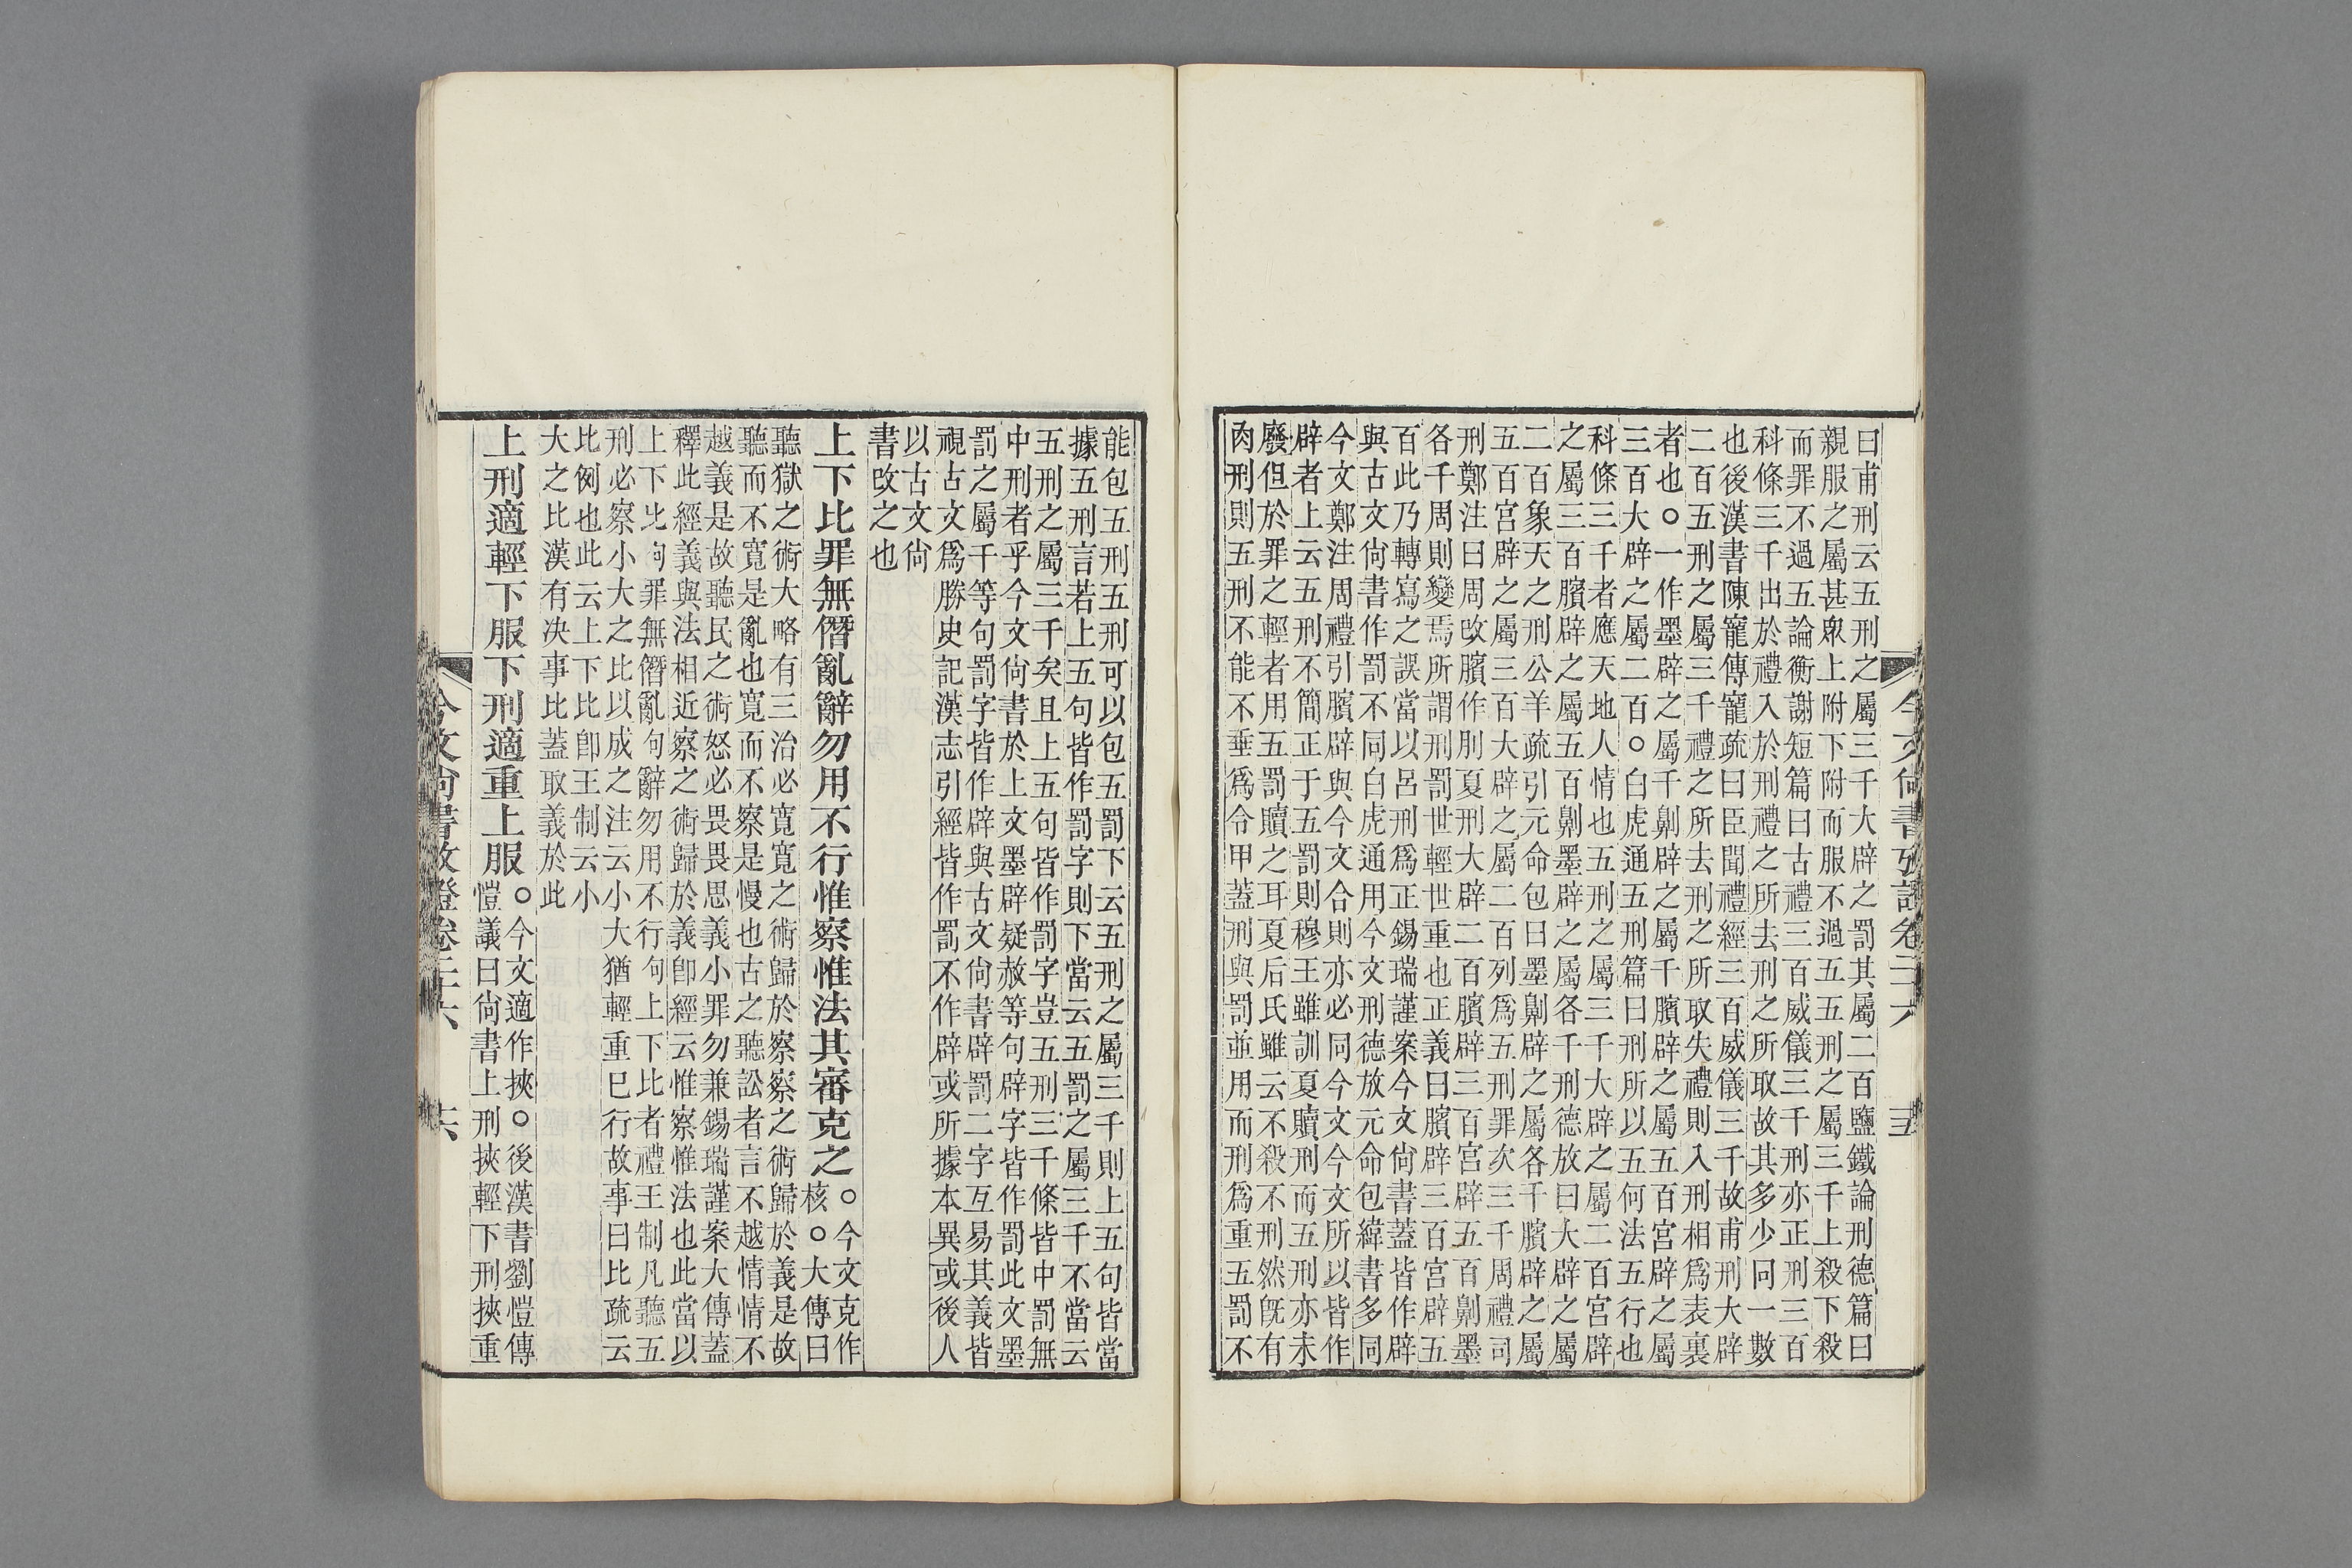 曰甫刑云五刑之屬三千大辟之罰其屬二百鹽鐵論刑德篇曰
親服之屬甚眾上附下附而服不過五五刑之屬三千上殺下殺
而罪不過五論衡謝短篇曰古禮三百威儀三千刑亦正刑三百
科條三千出於禮入於刑禮之所去刑之所取故其多少同一數
也後漢書陳寵傳寵疏曰臣聞禮經三百威儀三千故甫刑大辟
二百五刑之屬三千禮之所去刑之所取失禮則入刑相爲表裏
者也○一作墨辟之屬千劓辟之屬千臏辟之屬五百宮辟之屬
三百大辟之屬二百○白虎通五刑篇曰刑所以五何法五行也
科條三千者應天地人情也五刑之屬三千大辟之屬二百宮辟
之屬三百臏辟之屬五百劓墨辟之屬各千刑德放曰大辟之屬
二百象天之刑公羊疏引元命包曰墨劓辟之屬各千臏辟之屬
五百宮辟之屬三百大辟之屬二百列爲五刑罪次三千周禮司
刑鄭注曰周改臏作刖夏刑大辟二百臏辟三百宮辟五百劓墨
各千周則變焉所謂刑罰世輕世重也正義曰臏辟三百宮辟五
百此乃轉寫之誤當以呂刑爲正錫瑞謹案今文尙書蓋皆作辟
與古文尙書作罰不同白虎通用今文刑德放元命包緯書多同
今文鄭注周禮引臏辟與今文合則亦必同今文今文所以皆作
辟者上云五刑不簡正于五罰則穆王雖訓夏贖刑而五刑亦未
廢但於罪之輕者用五罰贖之耳夏后氏雖云不殺不刑然旣有
肉刑則五刑不能不垂爲令甲蓋刑與罰並用而刑爲重五罰不
今文尙書攷證卷二十六 十五
能包五刑五刑可以包五罰下云五刑之屬三千則上五句皆當
據五刑言若上五句皆作罰字則下當云五罰之屬三千不當云
五刑之屬三千矣且上五句皆作罰字豈五刑三千條皆中罰無
中刑者乎今文尙書於上文墨辟疑赦等句辟字皆作罰此文墨
罰之屬千等句罰字皆作辟與古文尙書辟罰二字互易其義皆
視古文爲勝史記漢志引經皆作罰不作辟或所據本異或後人
以古文尙
書改之也
上下比罪無僭亂辭勿用不行惟察惟法其審克之○今文克作
核○大傳曰
聽獄之術大略有三治必寬寬之術歸於察察之術歸於義是故
聽而不寬是亂也寬而不察是慢也古之聽訟者言不越情情不
越義是故聽民之術怒必畏畏思義小罪勿兼錫瑞謹案大傳蓋
釋此經義與法相近察之術歸於義卽經云惟察惟法也此當以
上下比句罪無僭亂句辭勿用不行句上下比者禮王制凡聽五
刑必察小大之比以成之注云小大猶輕重已行故事曰比疏云
比例也此云上下比卽王制云小
大之比漢有决事比蓋取義於此
上刑適輕下服下刑適重上服○今文適作挾○後漢書劉愷傳
愷議曰尙書上刑挾輕下刑挾重
今文尙書攷證卷二十六 十六